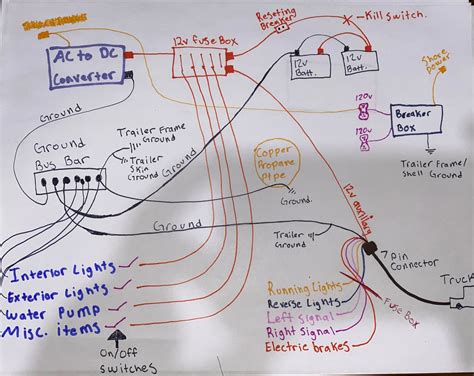 Resetting
Breaker
Kill switch.
12v fuse Box
AC to DC
Converter
12v
Batt.
12v
Batt.
Shore
power
120v
120v
Breaker
Box
Ground
Ground
Trailer Frame
Ground
Trailer
Skin
Ground
Ground
Bus Bar
Copper
Propane
Pipe
Ground
Trailer Frame/
Shell Ground
12v auxillary
Ground
Trailer
Ground
7 Pin
Connector
Truck
Interior Lights
Exterior Lights
Water Pump
Misc. items
On/Off
switches
Running Lights
Reverse Lights
Left signal
Right Signal
Electric brakes
Fuse Box